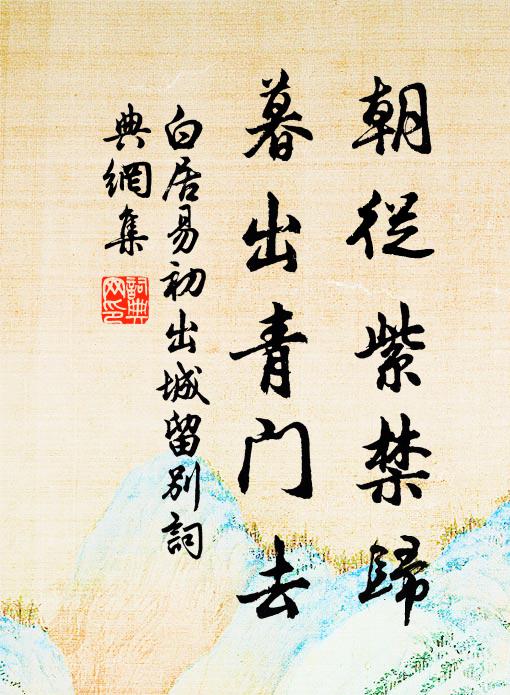 朝從紫禁歸
暮出青門去
白居易初出城留別詞
典網集
詞典
网印